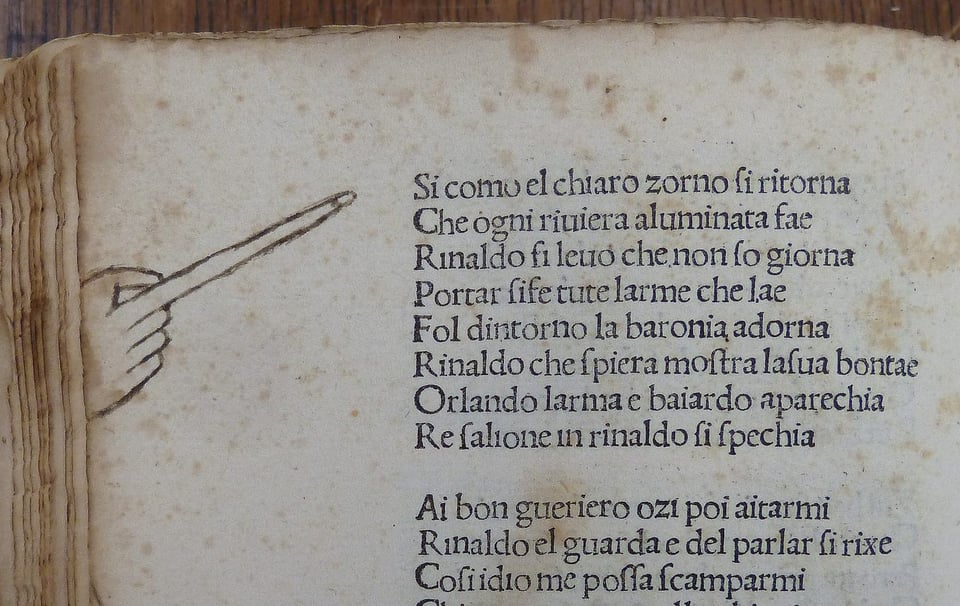 Si como el chiaro zorno ſi ritorna
Che ogni riuiera aluminata fae
Rinaldo ſi leuo che non ſo giorna
Portar ſife tute larme che lae
Fol dintorno la baronia adorna
Rinaldo che ſpiera moſtra laſua bontae
Orlando larma e baiardo aparechia
Re ſalione in rinaldo ſi ſpechia
Ai bon gueriero ozi poi aitarmi
Rinaldo el guarda e del parlar ſi rixe
Coſi idio me poſſa ſcamparmi